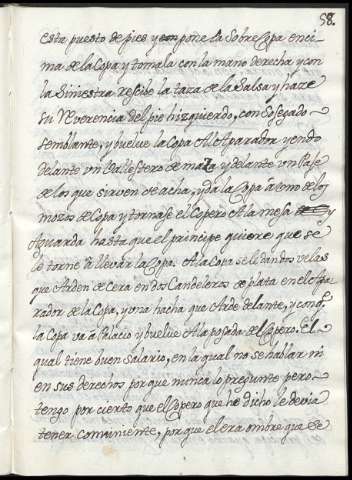 58.
esta puesto de pies y pone la Sobre Copa enci-
ma de la Copa y tomala con la mano derecha y con
la siniestra rescibe la taza de la Salsa y haze
su Reverencia del pie hizquierdo, con Sosegado
semblante, y buelve la Copa Al Aparador yendo
delante un Ballestero de maza y delante un Paje
de los que sirven de acha, y da la Copa à uno de los
mozos de Copa y tornase el Copero A la mesa y
Aguarda hasta que el principe quiere que se
le torne à llevar la Copa. A la Copa se le dan dos velas
que Arden de Cera en dos Candeleros de plata en el Apa-
rador de la Copa, y una hacha que Arde delante, y con q.
la Copa va à Palacio y buelve A la posada del Copero. El
qual tiene buen salario, en la qual no se hablar ni
en sus derechos porque nunca lo pregunte pero
tengo por cierto que el Copero que he dicho le devia
tener comuniente, porque el era ombre que se